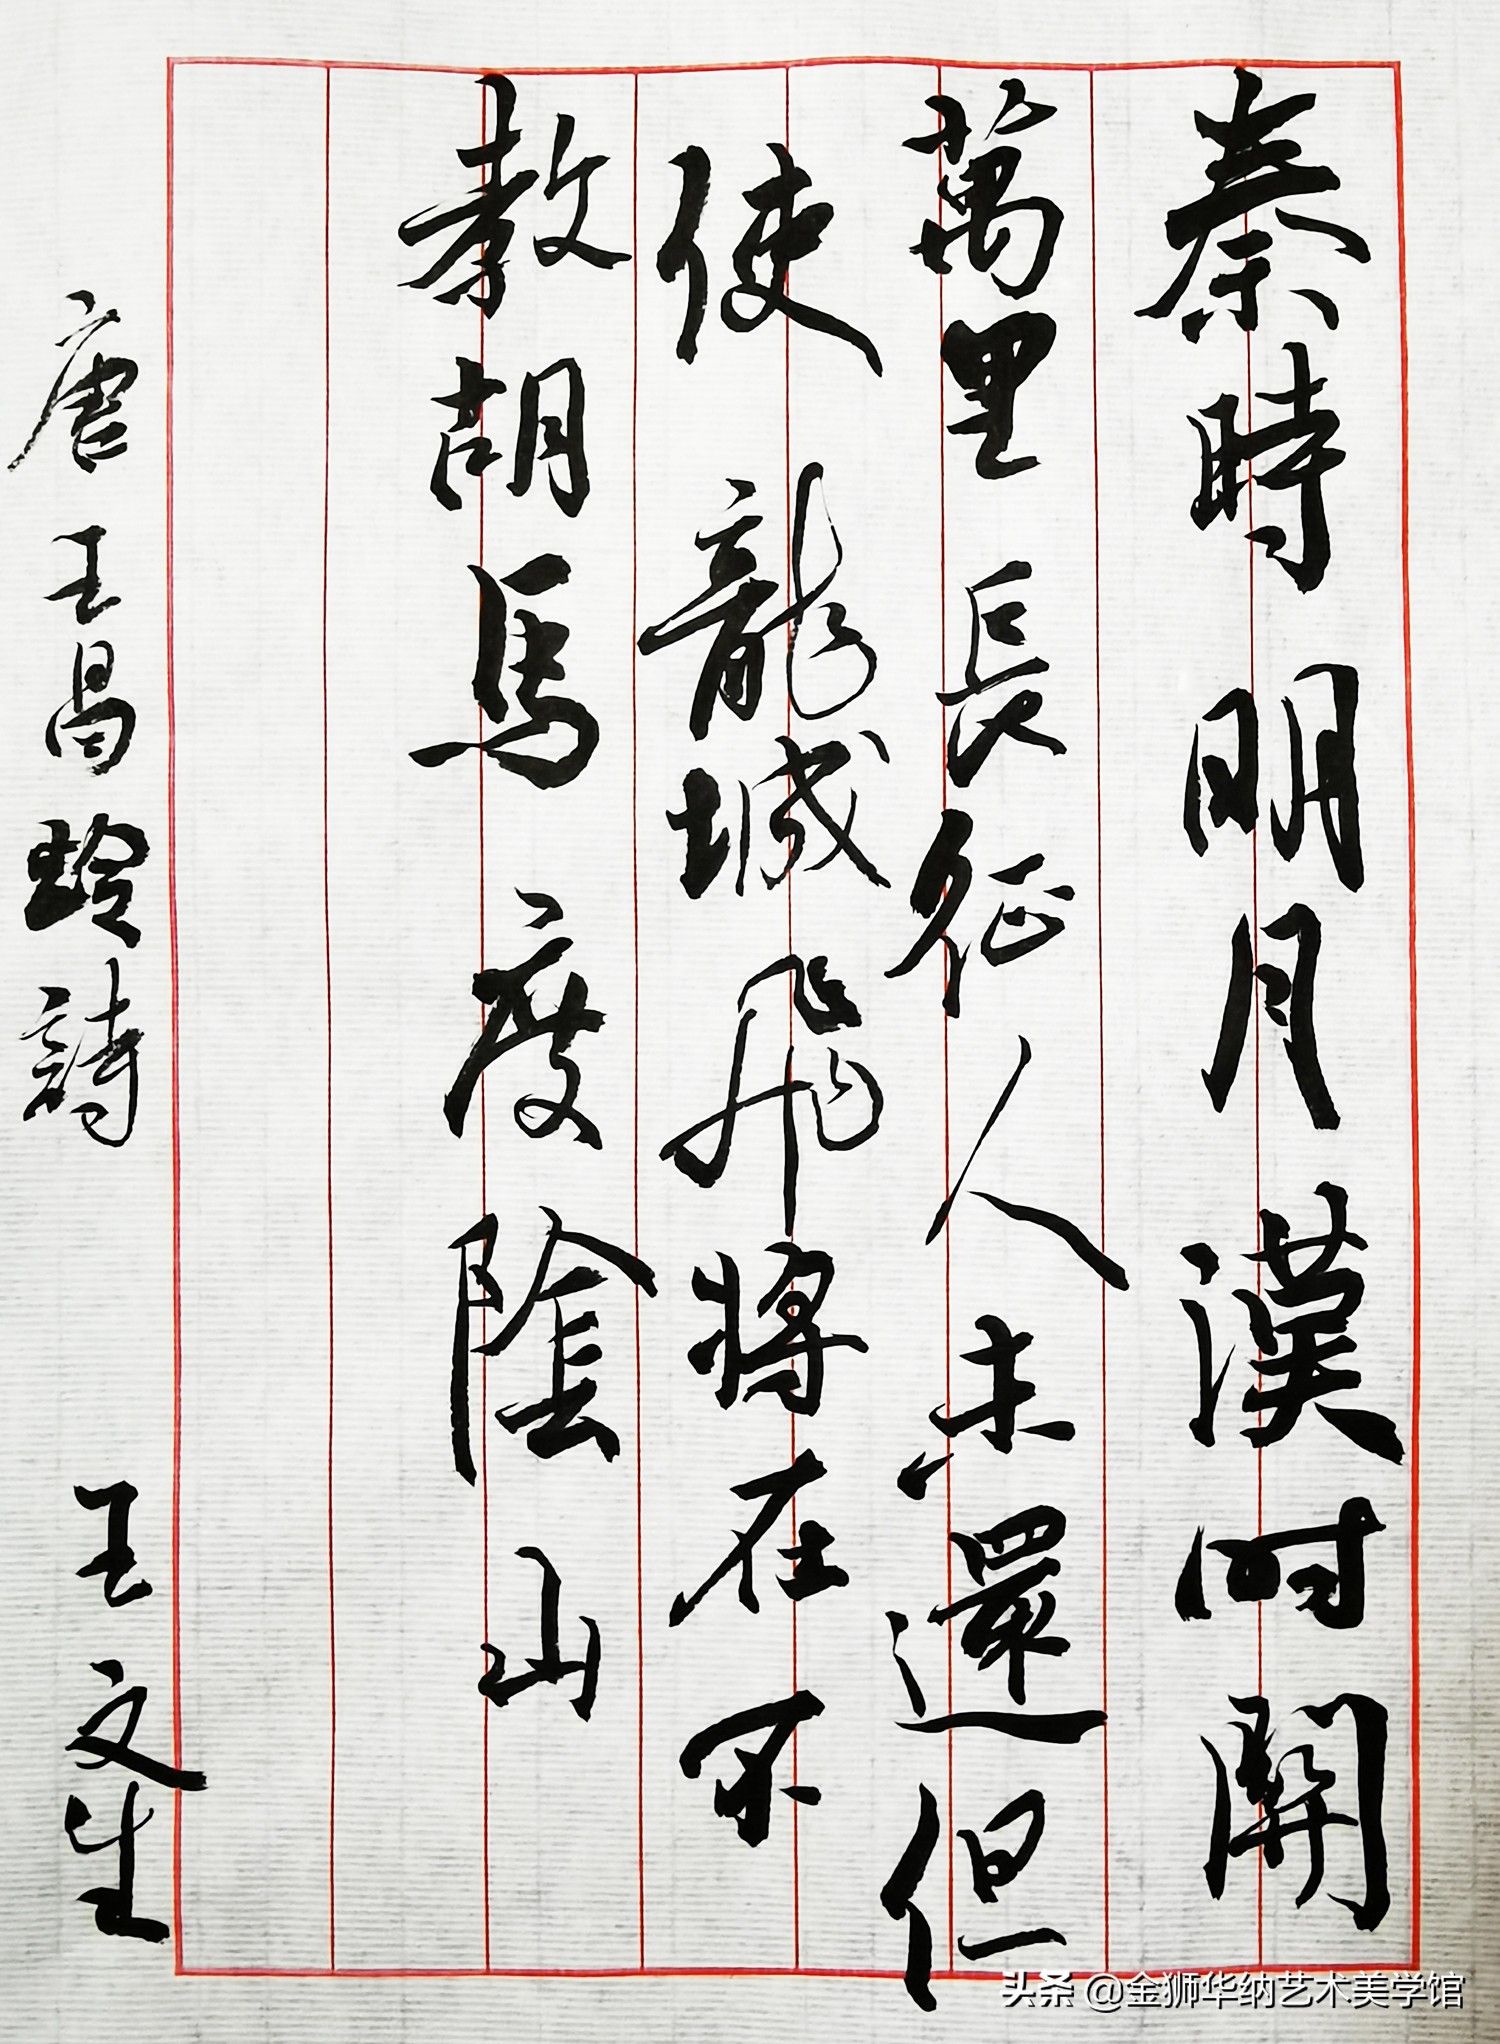 秦時明月漢时關
萬里長征人未還但
使龍城飛將在不
教胡馬度陰山
唐王昌龄詩
王文生
头条 @金狮华纳艺术美学馆